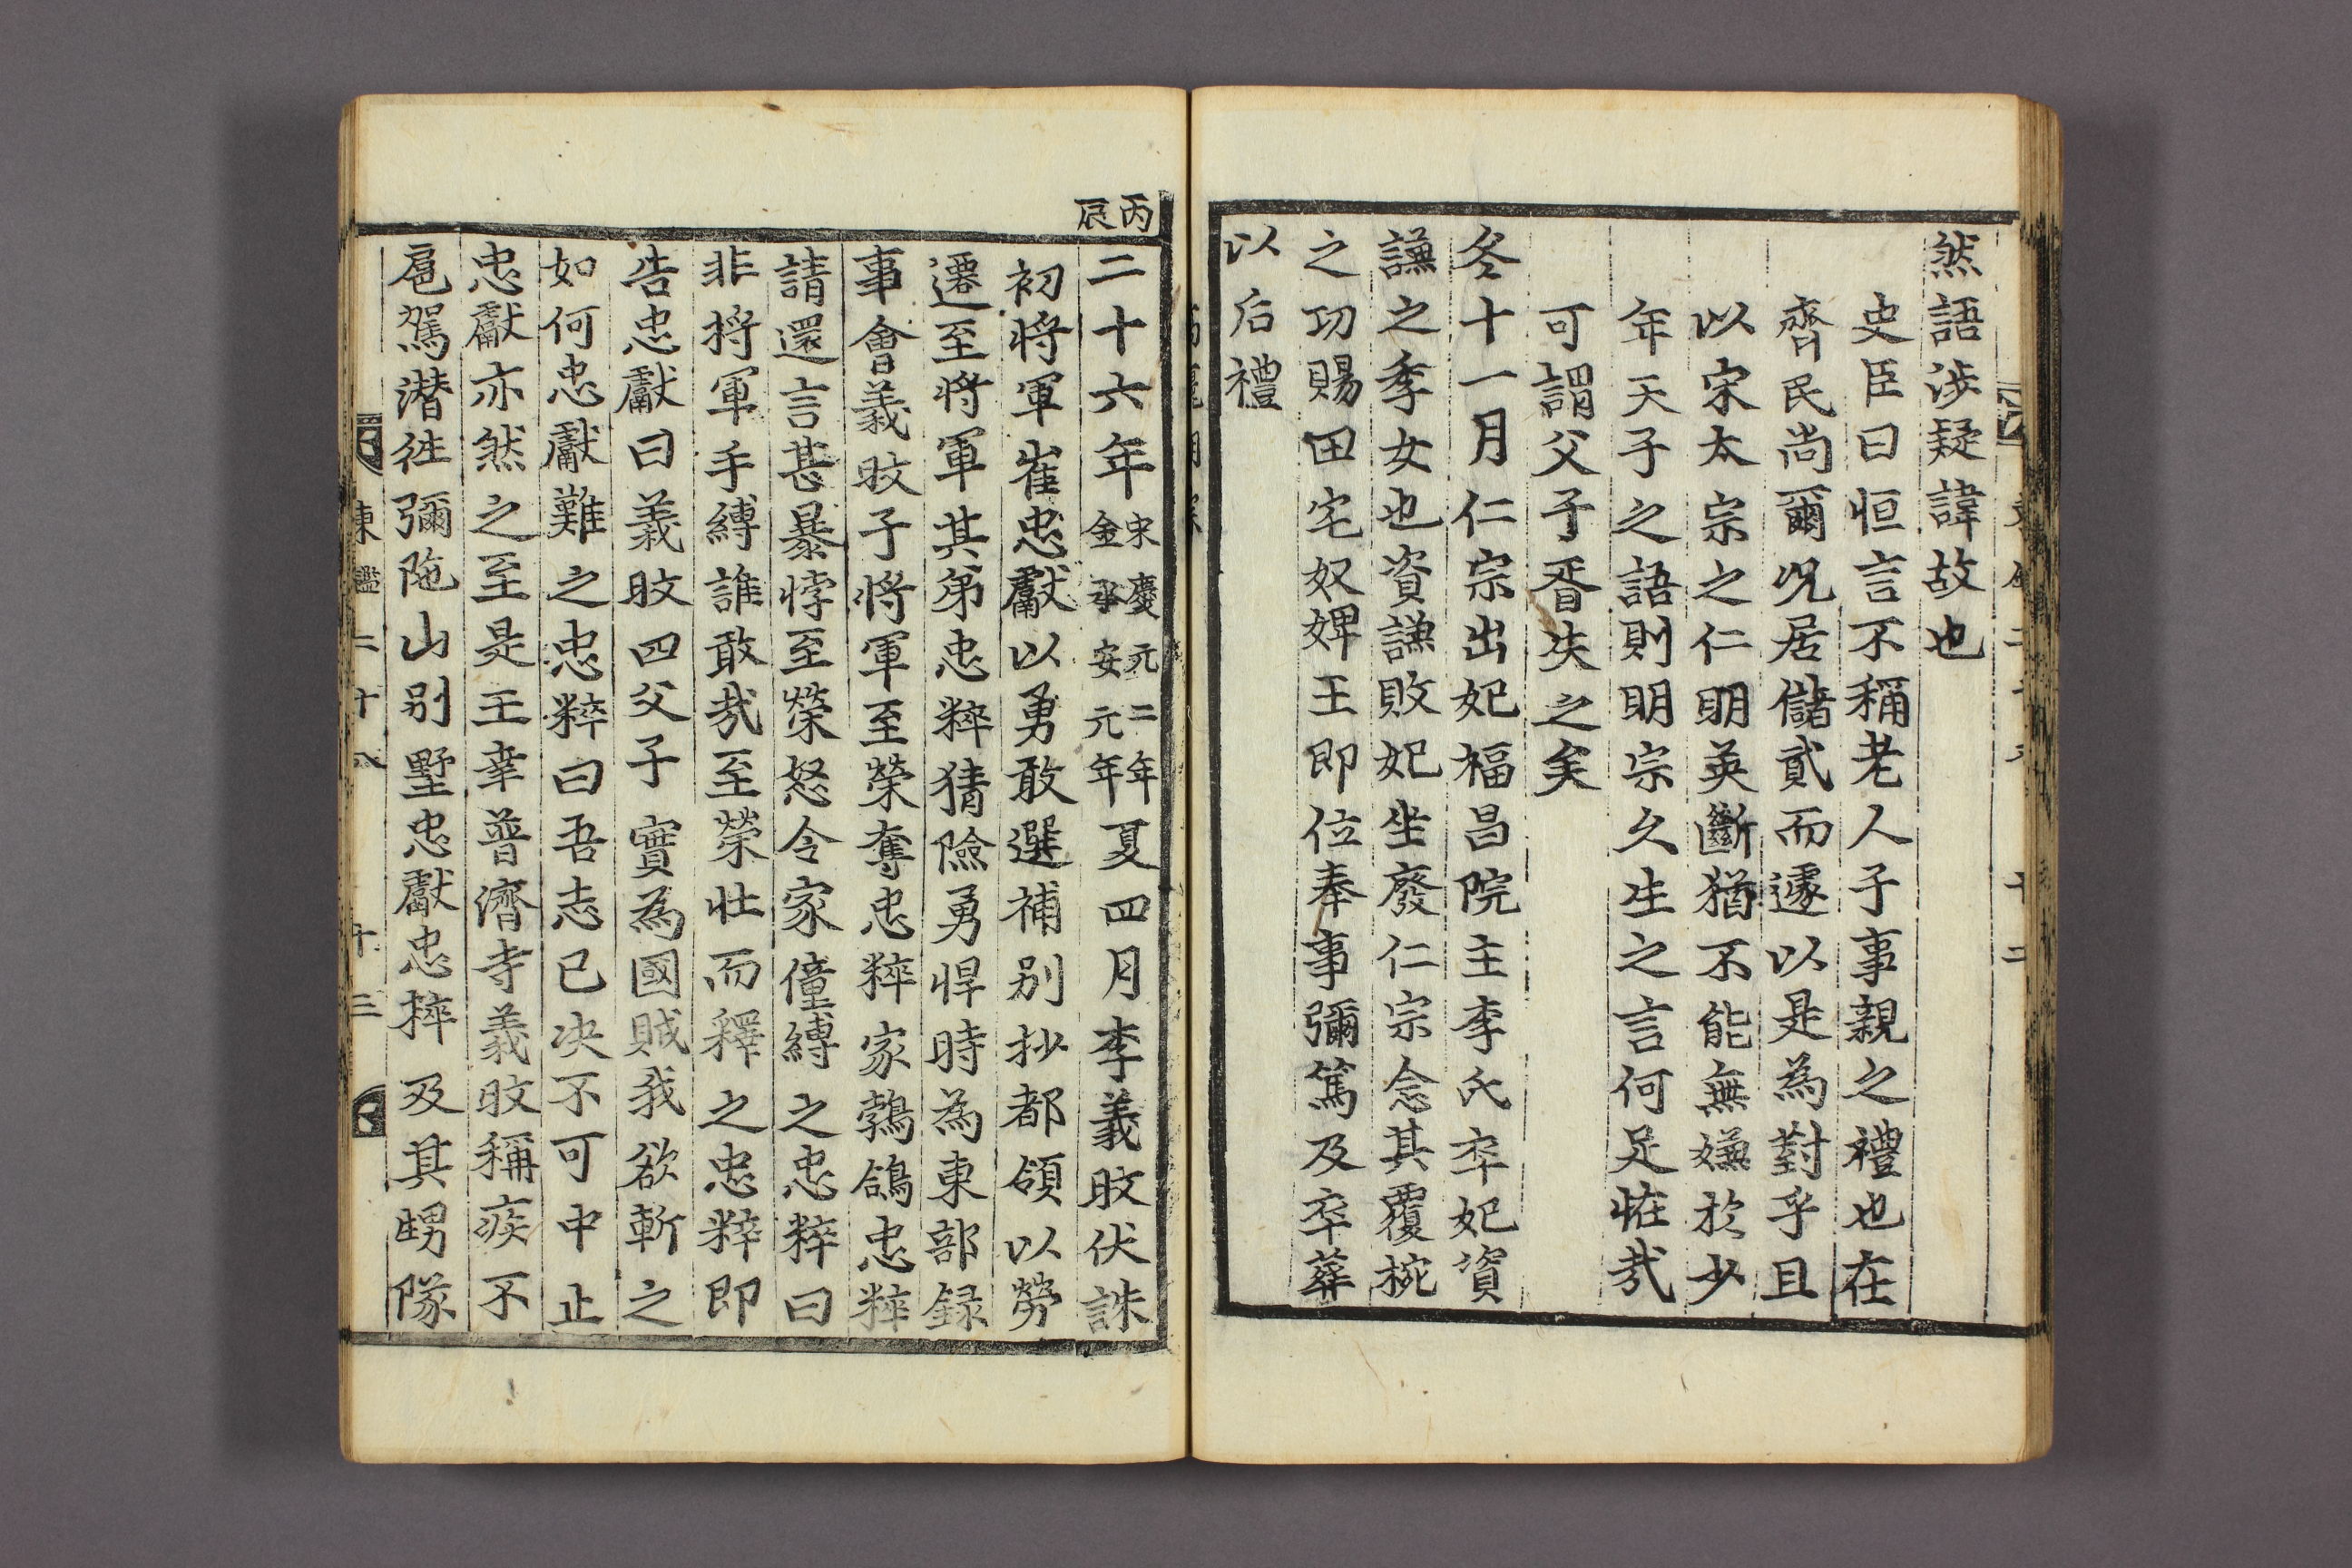 然語涉疑諱故也
史臣曰恒言不稱老人子事親之禮也在
齊民尚爾況居儲貳而遽以是為對乎且
以宋太宗之仁明英斷猶不能無嫌於少
年天子之語則明宗久生之言何足恠㢤
可謂父子胥失之矣
冬十一月仁宗出妃福昌院主李氏卒妃資
謙之季女也資謙敗妃坐廢仁宗念其覆椀
之功賜田宅奴婢王即位奉事彌篤及卒葬
以后禮
丙辰
二十六年宋慶元二年金承安元年夏四月李義旼伏誅
初將軍崔忠獻以勇敢選補别抄都領以勞
遷至將軍其弟忠粹猜險勇悍時為東部録
事會義旼子將軍至榮奪忠粹家鵓鴿忠粹
請還言甚暴悖至榮怒令家僮縛之忠粹曰
非將軍手縛誰敢㢤至榮壯而釋之忠粹即
告忠獻曰義旼四父子實為國賊我欲斬之
如何忠獻難之忠粹曰吾志已决不可中止
忠獻亦然之至是王幸普濟寺義旼稱疾不
扈駕潜徃彌陁山别墅忠獻忠粹及其甥隊
東鑑二十八 十三